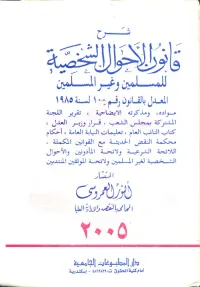 شرح
قانون الأحوال الشخصية
للمسلمين وغير المسلمين
المعدل بالقانون رقم ١٠٠ لسنة ١٩٨٥
مواده، ومذكرته الايضاحية ، تقرير اللجنة
المشتركة بمجلس الشعب ، قرار وزير العدل ،
كتاب النائب العام ، تعليمات النيابة العامة ، أحكام
محكمة النقض الحديثة مع القوانين المكملة ،
اللائحة الشرعية ولائحة المأذونين والأحوال
الشخصية لغير المسلمين ولائحة الموثقين المنتدبين
المستشار
أنور العمروسي
المحامي بالنقض والإدارية العليا
٢٠٠٥
دار المطبوعات الجامعية
أمام كلية الحقوق ت: ٤٨٦٢٨٢٩ - إسكندرية